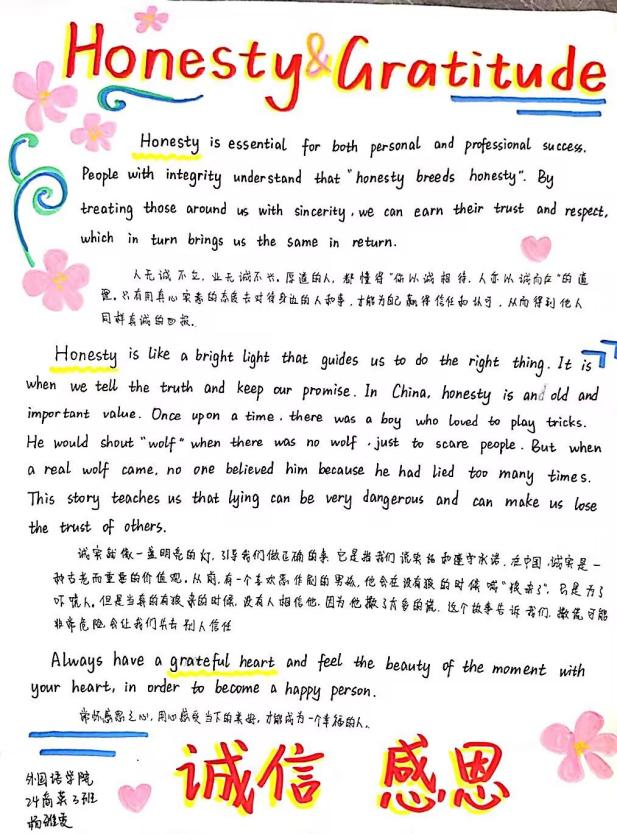 Honesty & Gratitude
Honesty is essential for both personal and professional success.
People with integrity understand that "honesty breeds honesty". By
treating those around us with sincerity, we can earn their trust and respect,
which in turn brings us the same in return.
人无诚不立，业无诚不兴。厚道的人，都懂得"你以诚相待，人亦以诚向左"的道
理。只有用真心实意的态度去对待身边的人和事，才能为自己赢得信任和认可，从而得到他人
同样真诚的回报。
Honesty is like a bright light that guides us to do the right thing. It is
when we tell the truth and keep our promise. In China, honesty is an old and
important value. Once upon a time, there was a boy who loved to play tricks.
He would shout "wolf" when there was no wolf, just to scare people. But when
a real wolf came, no one believed him because he had lied too many times.
This story teaches us that lying can be very dangerous and can make us lose
the trust of others.
诚实就像一盏明亮的灯，引导我们做正确的事。它是指我们说实话和遵守承诺，在中国，诚实是一
种古老而重要的价值观。从前，有一个喜欢恶作剧的男孩，他会在没有狼的时候喊"狼来了"，只是为了
吓唬人。但是当真的有狼来的时候，没有人相信他，因为他撒了太多的谎。这个故事告诉我们，撒谎可能
非常危险，会让我们失去别人信任
Always have a grateful heart and feel the beauty of the moment with
your heart, in order to become a happy person.
常怀感恩之心，用心感受当下的美好，才能成为一个幸福的人。
诚信 感恩
外国语学院
24商英3班
杨雅雯